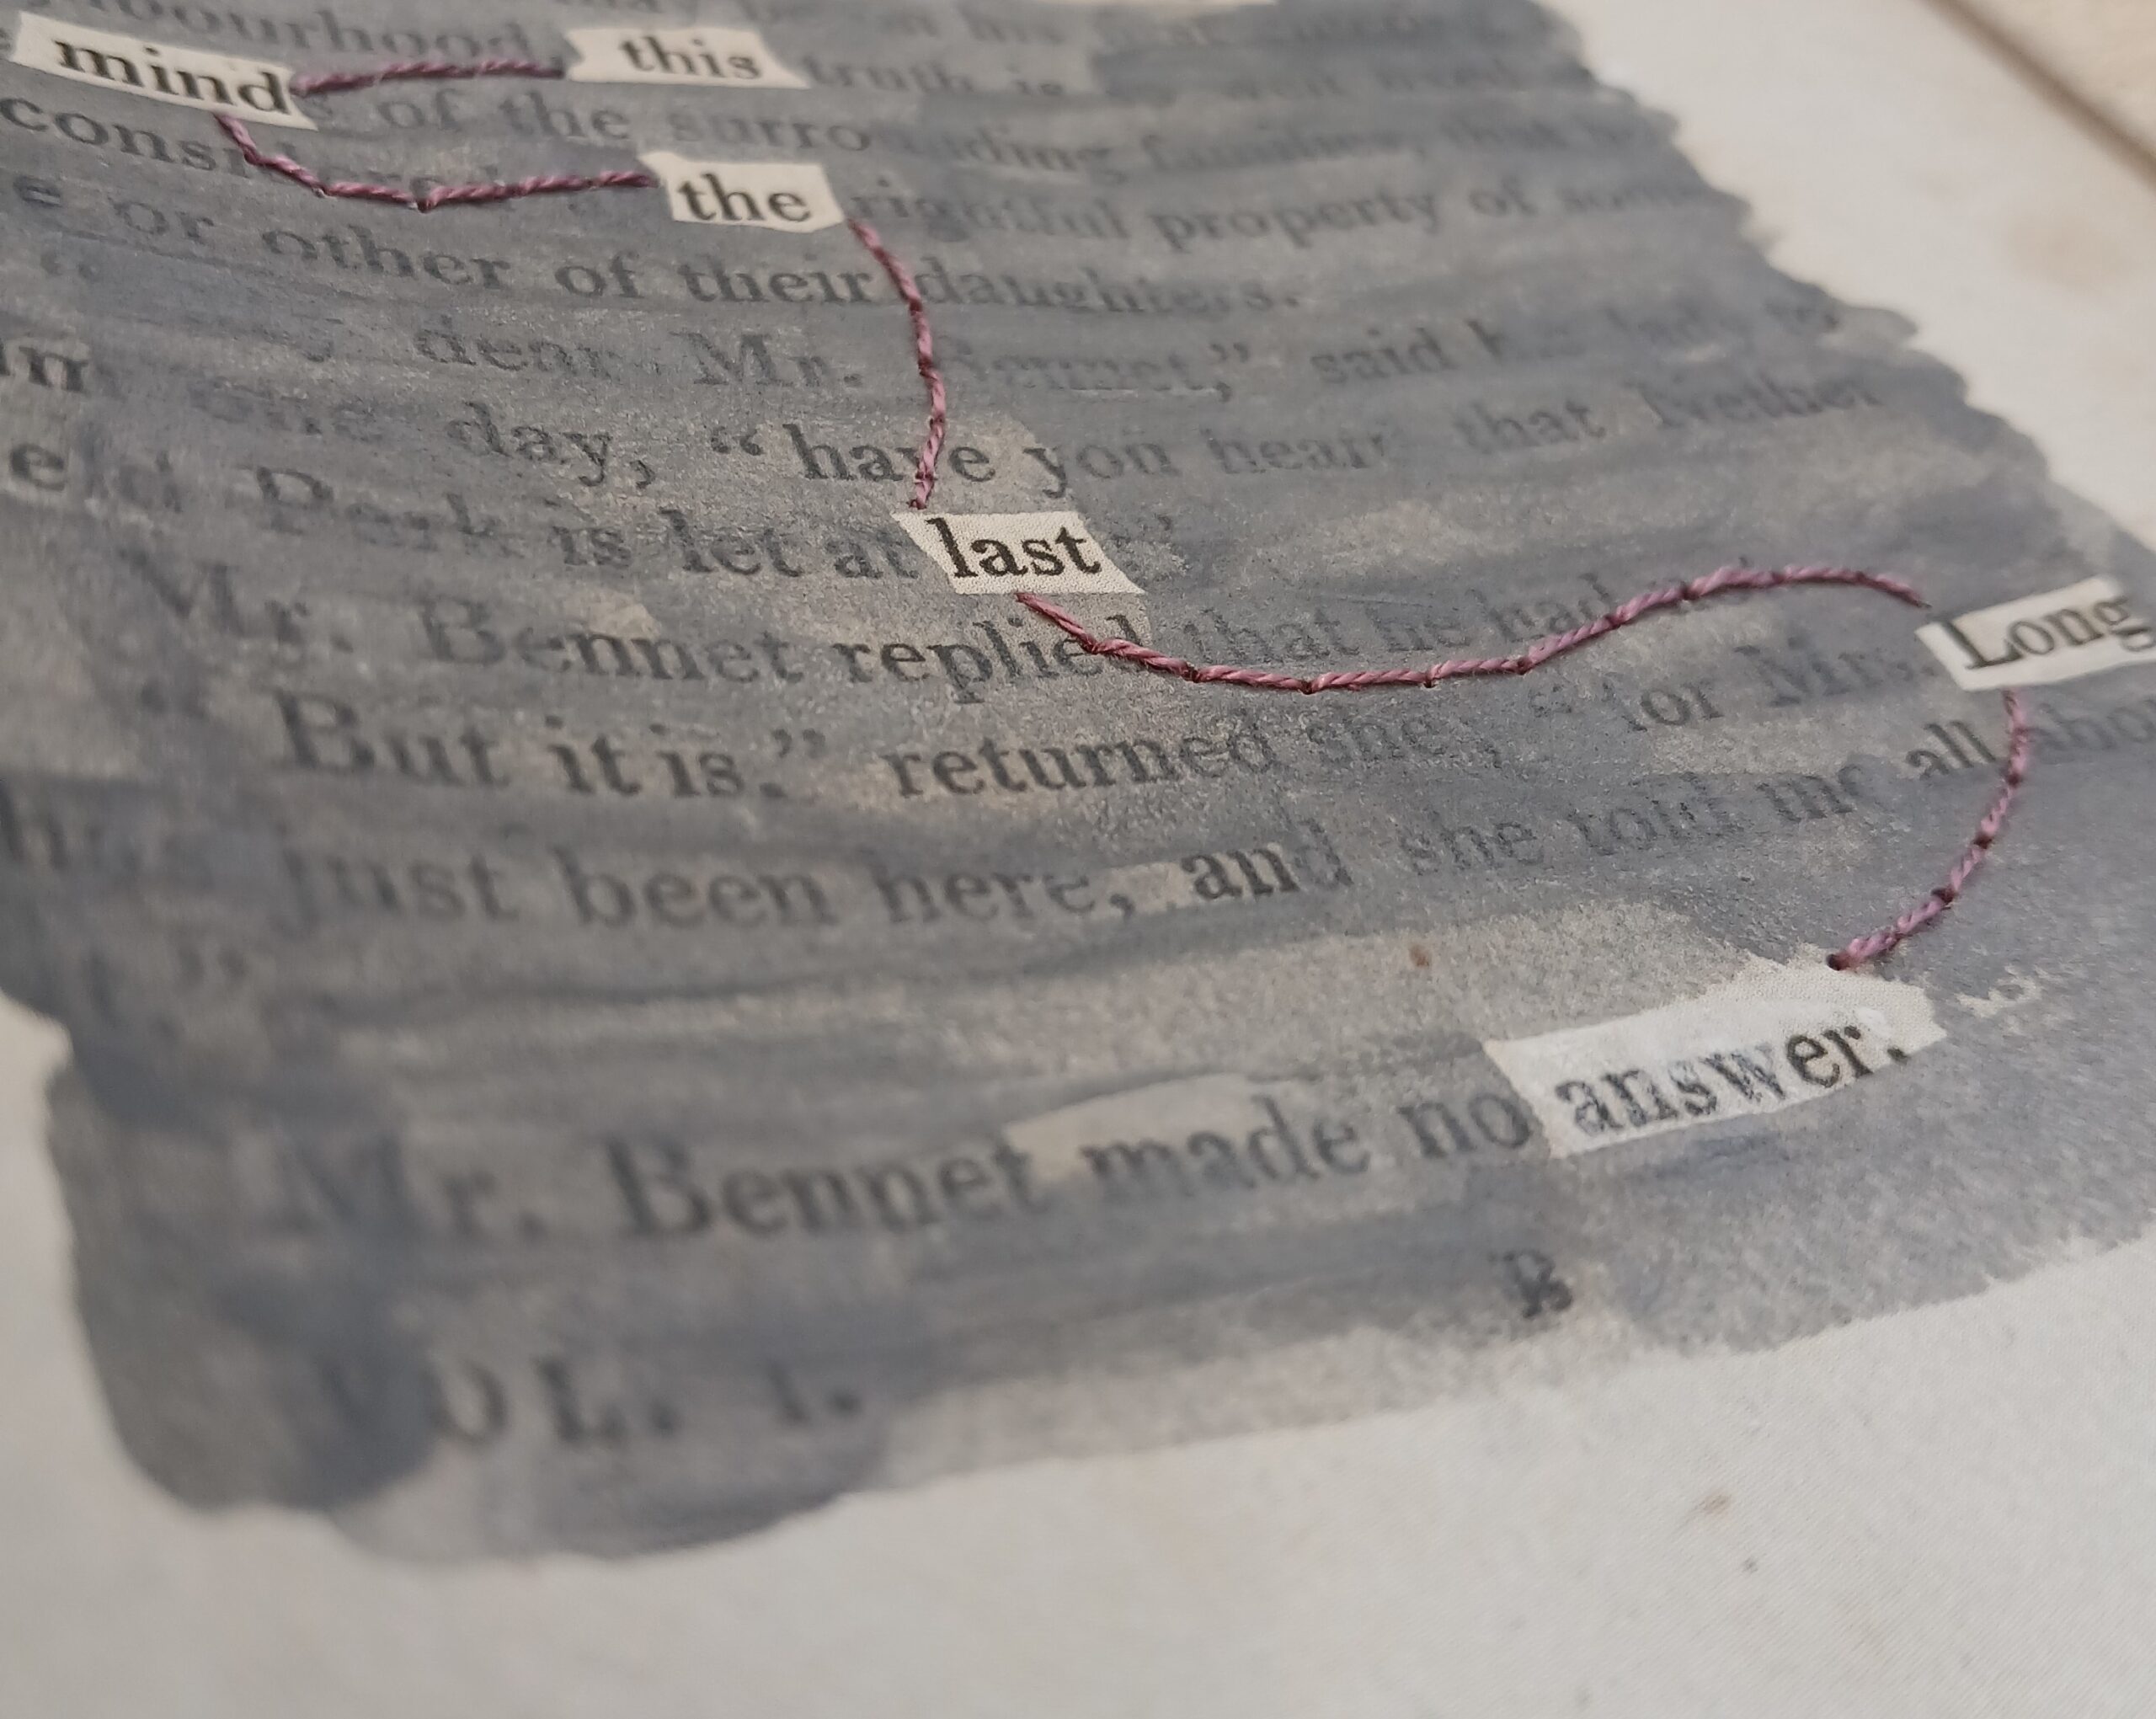 bourhood this truth is
mind of the surrounding families, that
considered the rightful property of some
e or other of their daughters.
dear Mr. Bennet," said his lady to
one day, "have you heard that Nether
e d Park is let at last
Mr. Bennet replied that he had
But it is," returned she, "for Mrs. Long
has just been here, and she told me all abo
Mr. Bennet made no answer.
B
VOL. I.